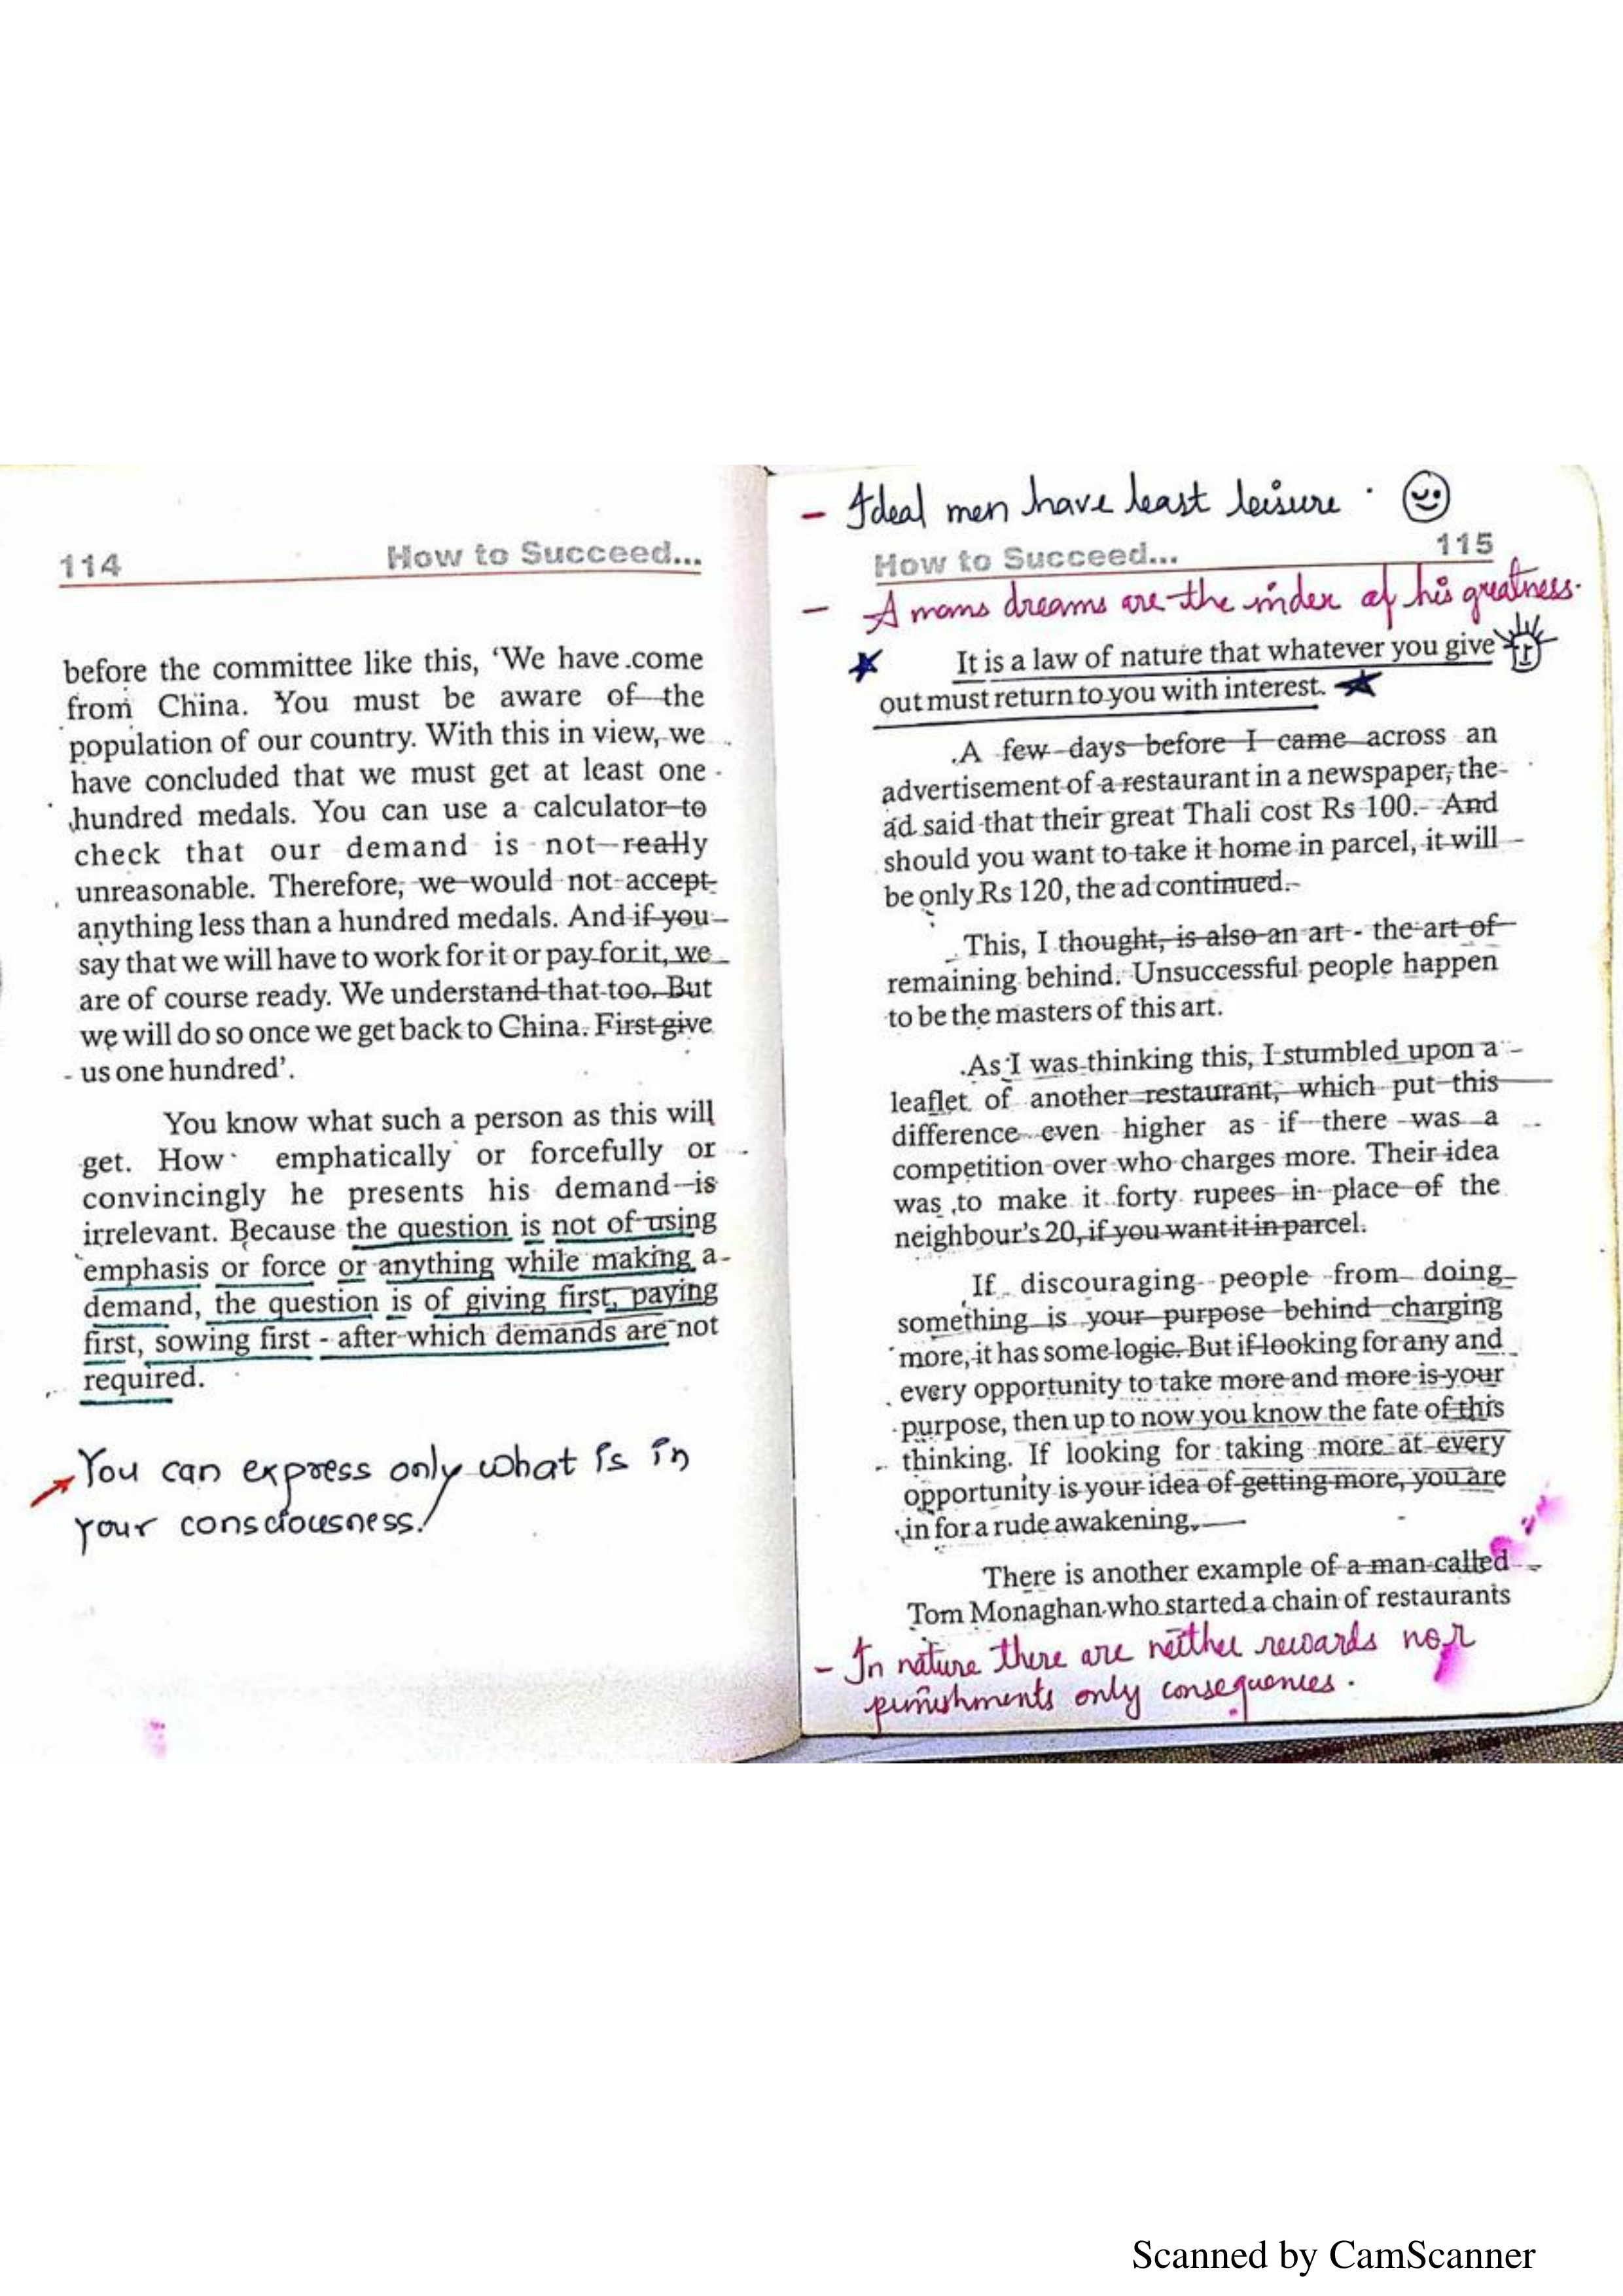 114 How to Succeed...
before the committee like this, ‘We have come
from China. You must be aware of the
population of our country. With this in view, we
have concluded that we must get at least one
hundred medals. You can use a calculator to
check that our demand is not really
unreasonable. Therefore, we would not accept
anything less than a hundred medals. And if you
say that we will have to work for it or pay for it, we
are of course ready. We understand that too. But
we will do so once we get back to China. First give
us one hundred’.
You know what such a person as this will
get. How emphatically or forcefully or
convincingly he presents his demand is
irrelevant. Because the question is not of using
emphasis or force or anything while making a
demand, the question is of giving first, paying
first, sowing first - after which demands are not
required.
You can express only what is in
your consciousness!
- Ideal men have least leisure.
How to Succeed... 115
- A mans dreams are the index of his greatness.
It is a law of nature that whatever you give
out must return to you with interest.
A few days before I came across an
advertisement of a restaurant in a newspaper, the
ad said that their great Thali cost Rs 100. And
should you want to take it home in parcel, it will
be only Rs 120, the ad continued.
This, I thought, is also an art - the art of
remaining behind. Unsuccessful people happen
to be the masters of this art.
As I was thinking this, I stumbled upon a
leaflet of another restaurant, which put this
difference even higher as if there was a
competition over who charges more. Their idea
was to make it forty rupees in place of the
neighbour's 20, if you want it in parcel.
If discouraging people from doing
something is your purpose behind charging
more, it has some logic. But if looking for any and
every opportunity to take more and more is your
purpose, then up to now you know the fate of this
thinking. If looking for taking more at every
opportunity is your idea of getting more, you are
in for a rude awakening.
There is another example of a man called
Tom Monaghan who started a chain of restaurants
- In nature there are neither rewards nor
punishments only consequences.
Scanned by CamScanner